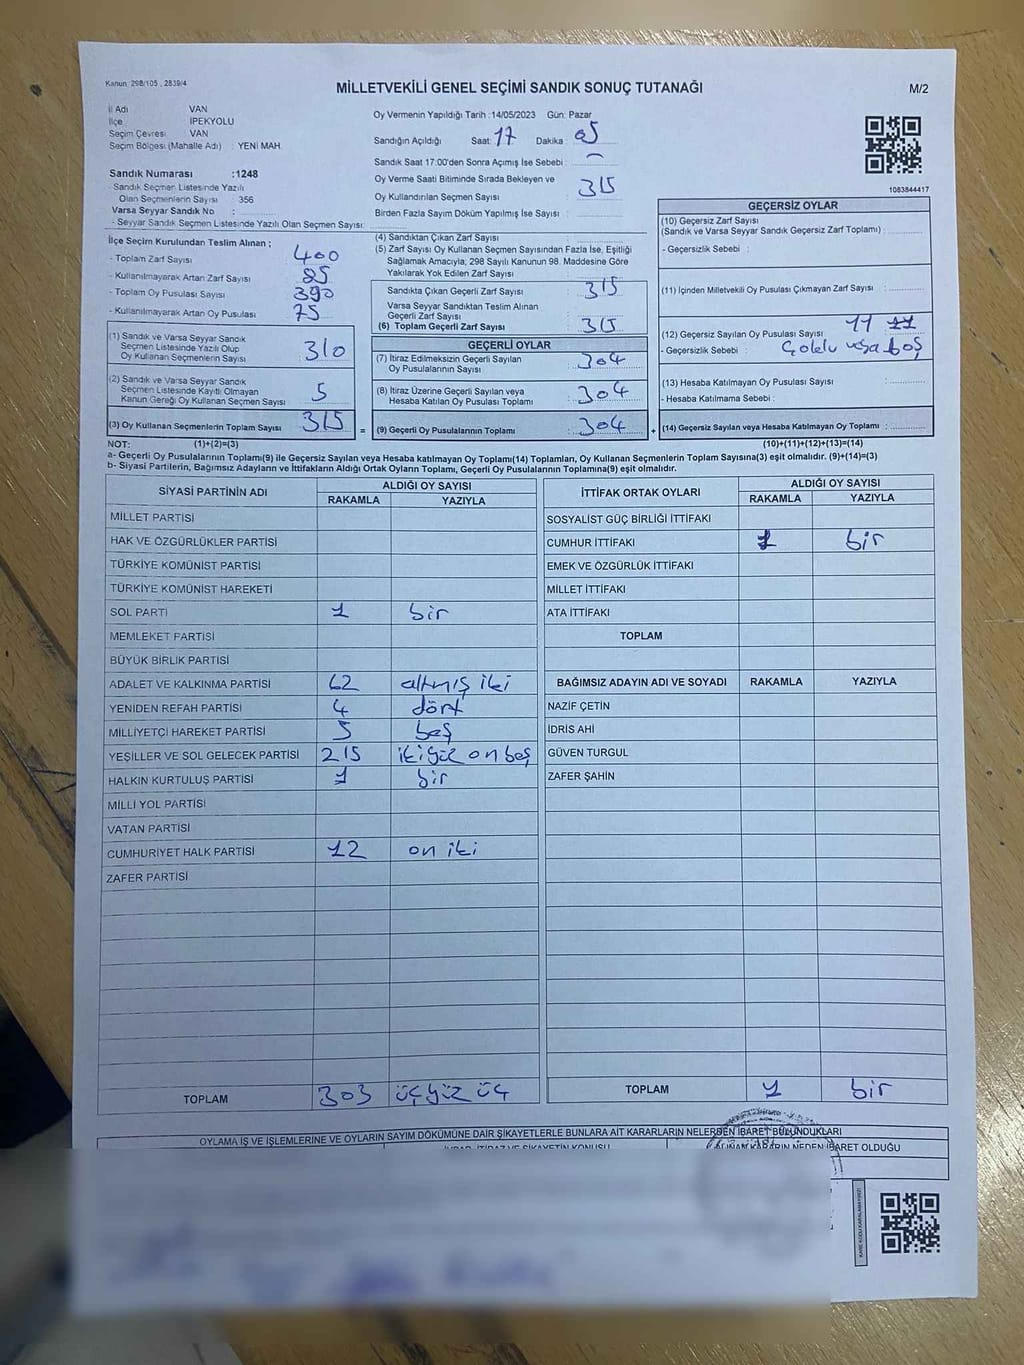 Kanun: 298/105 , 2839/4
MİLLETVEKİLİ GENEL SEÇİMİ SANDIK SONUÇ TUTANAĞI
M/2
İl Adı VAN
İlçe İPEKYOLU
Seçim Çevresi VAN
Seçim Bölgesi (Mahalle Adı) : YENİ MAH.
Sandık Numarası :1248
- Sandık Seçmen Listesinde Yazılı
Olan Seçmenlerin Sayısı 356
Varsa Seyyar Sandık No :
- Seyyar Sandık Seçmen Listesinde Yazılı Olan Seçmen Sayısı:
Oy Vermenin Yapıldığı Tarih :14/05/2023 Gün: Pazar
Sandığın Açıldığı Saat: 17 Dakika : 05
Sandık Saat 17:00'den Sonra Açımış İse Sebebi :
Oy Verme Saati Bitiminde Sırada Bekleyen ve
Oy Kullandırılan Seçmen Sayısı : 315
Birden Fazla Sayım Döküm Yapılmış İse Sayısı :
1083844417
İlçe Seçim Kurulundan Teslim Alınan ;
- Toplam Zarf Sayısı 400
- Kullanılmayarak Artan Zarf Sayısı : 85
- Toplam Oy Pusulası Sayısı 390
- Kullanılmayarak Artan Oy Pusulası 75
(1) Sandık ve Varsa Seyyar Sandık
Seçmen Listesinde Yazılı Olup
Oy Kullanan Seçmenlerin Sayısı : 310
(2) Sandık ve Varsa Seyyar Sandık
Seçmen Listesinde Kayıtlı Olmayan
Kanun Gereği Oy Kullanan Seçmen Sayısı : 5
(3) Oy Kullanan Seçmenlerin Toplam Sayısı : 315
(4) Sandıktan Çıkan Zarf Sayısı :
(5) Zarf Sayısı Oy Kullanan Seçmen Sayısından Fazla İse, Eşitliği
Sağlamak Amacıyla; 298 Sayılı Kanunun 98. Maddesine Göre
Yakılarak Yok Edilen Zarf Sayısı
Sandıkta Çıkan Geçerli Zarf Sayısı : 315
Varsa Seyyar Sandıktan Teslim Alınan
Geçerli Zarf Sayısı :
(6) Toplam Geçerli Zarf Sayısı : 315
GEÇERLİ OYLAR
(7) İtiraz Edilmeksizin Geçerli Sayılan
Oy Pusulalarının Sayısı : 304
(8) İtiraz Üzerine Geçerli Sayılan veya
Hesaba Katılan Oy Pusulası Toplamı : 304
= (9) Geçerli Oy Pusulalarının Toplamı : 304 +
GEÇERSİZ OYLAR
(10) Geçersiz Zarf Sayısı
(Sandık ve Varsa Seyyar Sandık Geçersiz Zarf Toplamı) :
- Geçersizlik Sebebi :
(11) İçinden Milletvekili Oy Pusulası Çıkmayan Zarf Sayısı :
(12) Geçersiz Sayılan Oy Pusulası Sayısı : 11 11
- Geçersizlik Sebebi : veya boş
(13) Hesaba Katılmayan Oy Pusulası Sayısı :
- Hesaba Katılmama Sebebi :
(14) Geçersiz Sayılan veya Hesaba Katılmayan Oy Toplamı :
NOT: (1)+(2)=(3) (10)+(11)+(12)+(13)=(14)
a- Geçerli Oy Pusulalarının Toplamı(9) ile Geçersiz Sayılan veya Hesaba katılmayan Oy Toplamı(14) Toplamları, Oy Kullanan Seçmenlerin Toplam Sayısına(3) eşit olmalıdır. (9)+(14)=(3)
b- Siyasi Partilerin, Bağımsız Adayların ve İttifakların Aldığı Ortak Oyların Toplamı, Geçerli Oy Pusulalarının Toplamına(9) eşit olmalıdır.
SİYASİ PARTİNİN ADI ALDIĞI OY SAYISI
RAKAMLA YAZIYLA
MİLLET PARTİSİ
HAK VE ÖZGÜRLÜKLER PARTİSİ
TÜRKİYE KOMÜNİST PARTİSİ
TÜRKİYE KOMÜNİST HAREKETİ
SOL PARTİ 1 bir
MEMLEKET PARTİSİ
BÜYÜK BİRLİK PARTİSİ
ADALET VE KALKINMA PARTİSİ 62 altmış iki
YENİDEN REFAH PARTİSİ 4 dört
MİLLİYETÇİ HAREKET PARTİSİ 5 beş
YEŞİLLER VE SOL GELECEK PARTİSİ 215 ikiyüz on beş
HALKIN KURTULUŞ PARTİSİ 1 bir
MİLLİ YOL PARTİSİ
VATAN PARTİSİ
CUMHURİYET HALK PARTİSİ 12 on iki
ZAFER PARTİSİ
TOPLAM 303 üçyüz üç
İTTİFAK ORTAK OYLARI ALDIĞI OY SAYISI
RAKAMLA YAZIYLA
SOSYALİST GÜÇ BİRLİĞİ İTTİFAKI
CUMHUR İTTİFAKI 1 bir
EMEK VE ÖZGÜRLÜK İTTİFAKI
MİLLET İTTİFAKI
ATA İTTİFAKI
TOPLAM
BAĞIMSIZ ADAYIN ADI VE SOYADI RAKAMLA YAZIYLA
NAZİF ÇETİN
İDRİS AHİ
GÜVEN TURGUL
ZAFER ŞAHİN
TOPLAM 1 bir
OYLAMA İŞ VE İŞLEMLERİNE VE OYLARIN SAYIM DÖKÜMÜNE DAİR ŞİKAYETLERLE BUNLARA AİT KARARLARIN NELERDEN İBARET BULUNDUKLARI
ALINAN KARARIN NEDEN İBARET OLDUĞU
KARE KODU KARALAMAYINIZ!